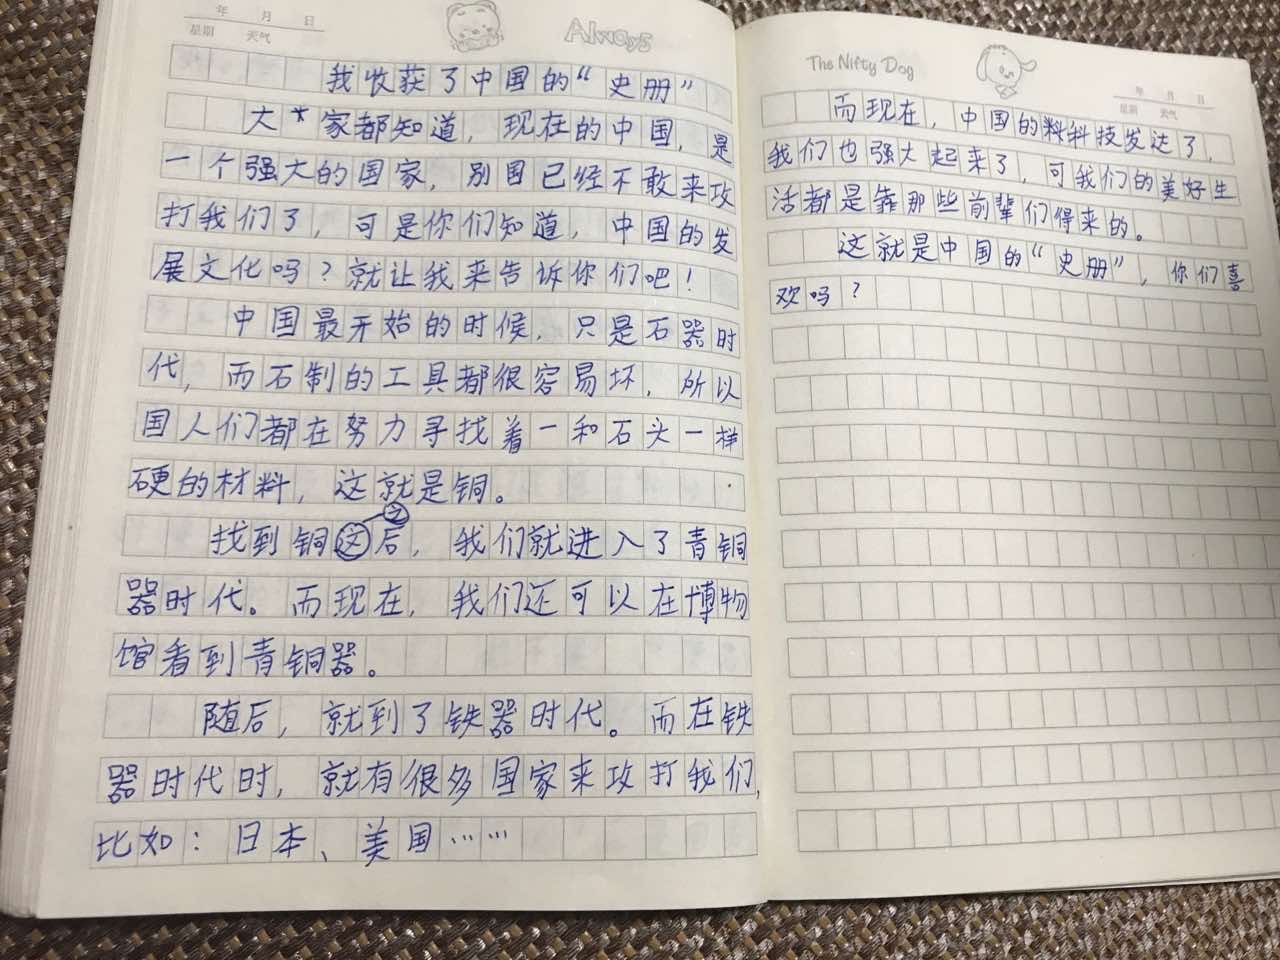 年 月 日
星期 天气
Always
我收获了中国的“史册”
大家都知道，现在的中国，是
一个强大的国家，别国已经不敢来攻
打我们了，可是你们知道，中国的发
展文化吗？就让我来告诉你们吧！
中国最开始的时候，只是石器时
代，而石制的工具都很容易坏，所以
国人们都在努力寻找着一和石头一样
硬的材料，这就是铜。
之
找到铜这后，我们就进入了青铜
器时代。而现在，我们还可以在博物
馆看到青铜器。
随后，就到了铁器时代。而在铁
器时代时，就有很多国家来攻打我们，
比如：日本、美国……
The Nifty Dog
年 月 日
星期 天气
而现在，中国的料科技发达了，
我们也强大起来了，可我们的美好生
活都是靠那些前辈们得来的。
这就是中国的“史册”，你们喜
欢吗？